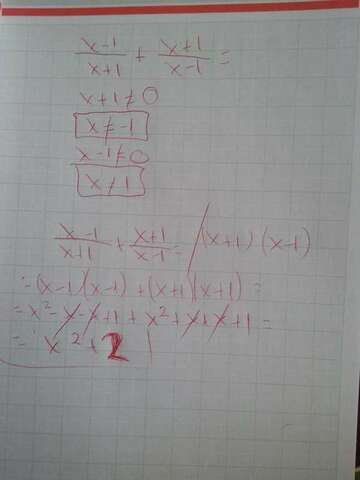 x-1/x+1 + x+1/x-1 =
x+1≠0
x≠-1
x-1≠0
x≠1
x-1/x+1 + x+1/x-1 = /(x+1)(x-1)
=(x-1)(x-1)+(x+1)(x+1)=
=x²-x-x+1+x²+x+x+1=
=x²+2